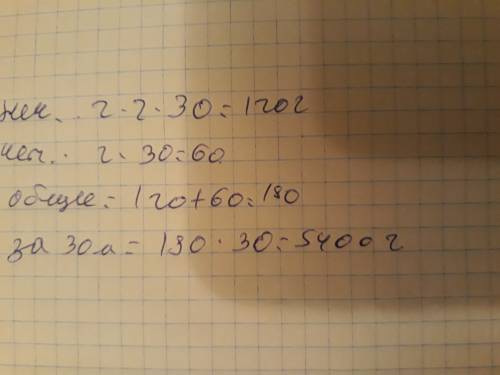 2 · 2 · 30 = 120 г
2 · 30 = 60
общие = 120 + 60 = 180
за 30 = 180 · 30 = 5400 г